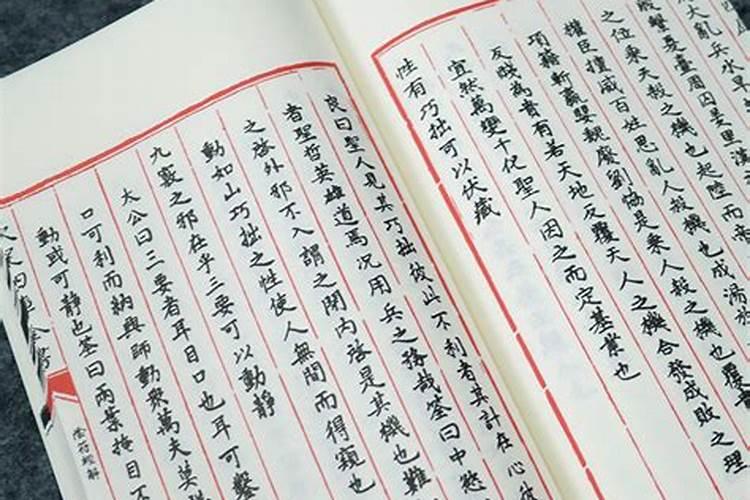 大亂兵水旱
夏臺周囚羑里漢
之位乘天殺之機也起陸而帝
權臣擅威百姓思亂人殺機也成湯放
項籍斬嬴嬰魏廢劉協是乘人殺之機也覆貴
反賤為貴有若天地反覆天人之機合發成敗之理
宜然萬變千化聖人因之而定基業也
性有巧拙可以伏藏
良曰聖人見其巧拙彼此不利者其計在心彼
者聖哲英雄道焉況用兵之務哉筌曰中慾
之啓外邪不入謂之閉內啓是其機也難
動如山巧拙之性使人無間而得窺也
九竅之邪在乎三要可以動靜
太公曰三要者耳目口也耳可鑿
口可利而納興師動眾萬夫莫議
動或可靜也筌曰兩葉掩目不
陰符經解